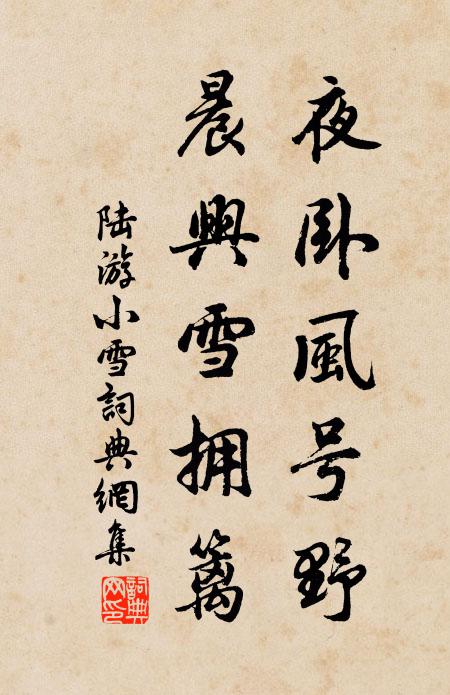 夜卧風号野
晨興雪拥籬
陆游小雪詞典網集
詞典网印